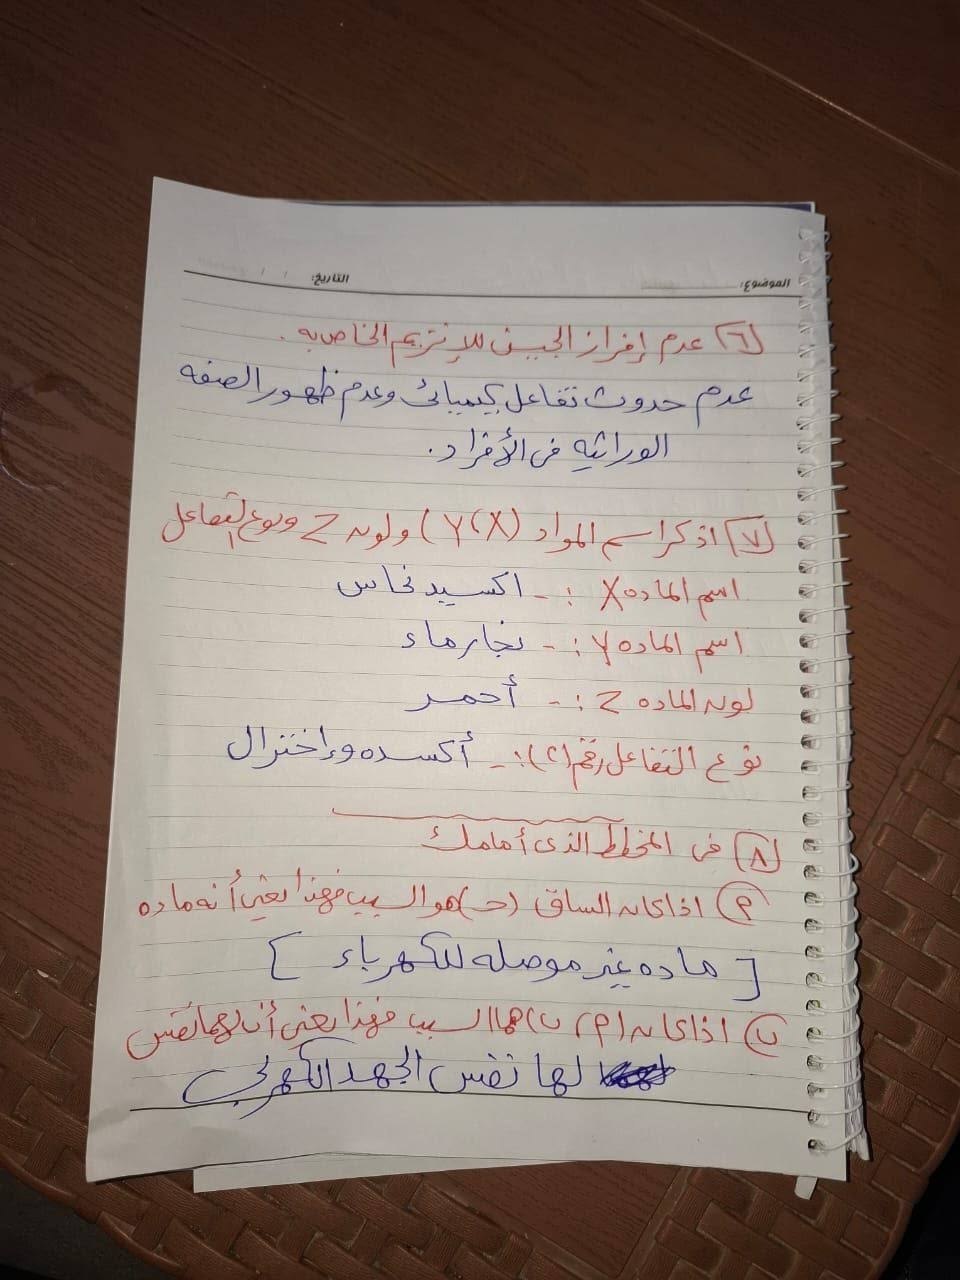 الموضوع: التاريخ: / /
٦) عدم إفراز الجين للإنزيم الخاص به.
عدم حدوث تفاعل كيميائى وعدم ظهور الصفه
الوراثيه فى الأفراد.
٧) اذكر اسم المواد (X، Y) ولون Z ونوع التفاعل
اسم الماده X :- اكسيد نحاس
اسم الماده Y :- بخار ماء
لون الماده Z :- أحمر
نوع التفاعل رقم (٢) :- أكسده وإختزال
٨) فى المخطط الذى أمامك
٩) اذا كان الساق (ج) هو السبب فهذا يعنى أنه ماده
[ ماده غير موصله للكهرباء ]
ب) اذا كان (٩، ب) هما السبب فهذا يعنى أن لهما نفس
لها نفس الجهد الكهربى